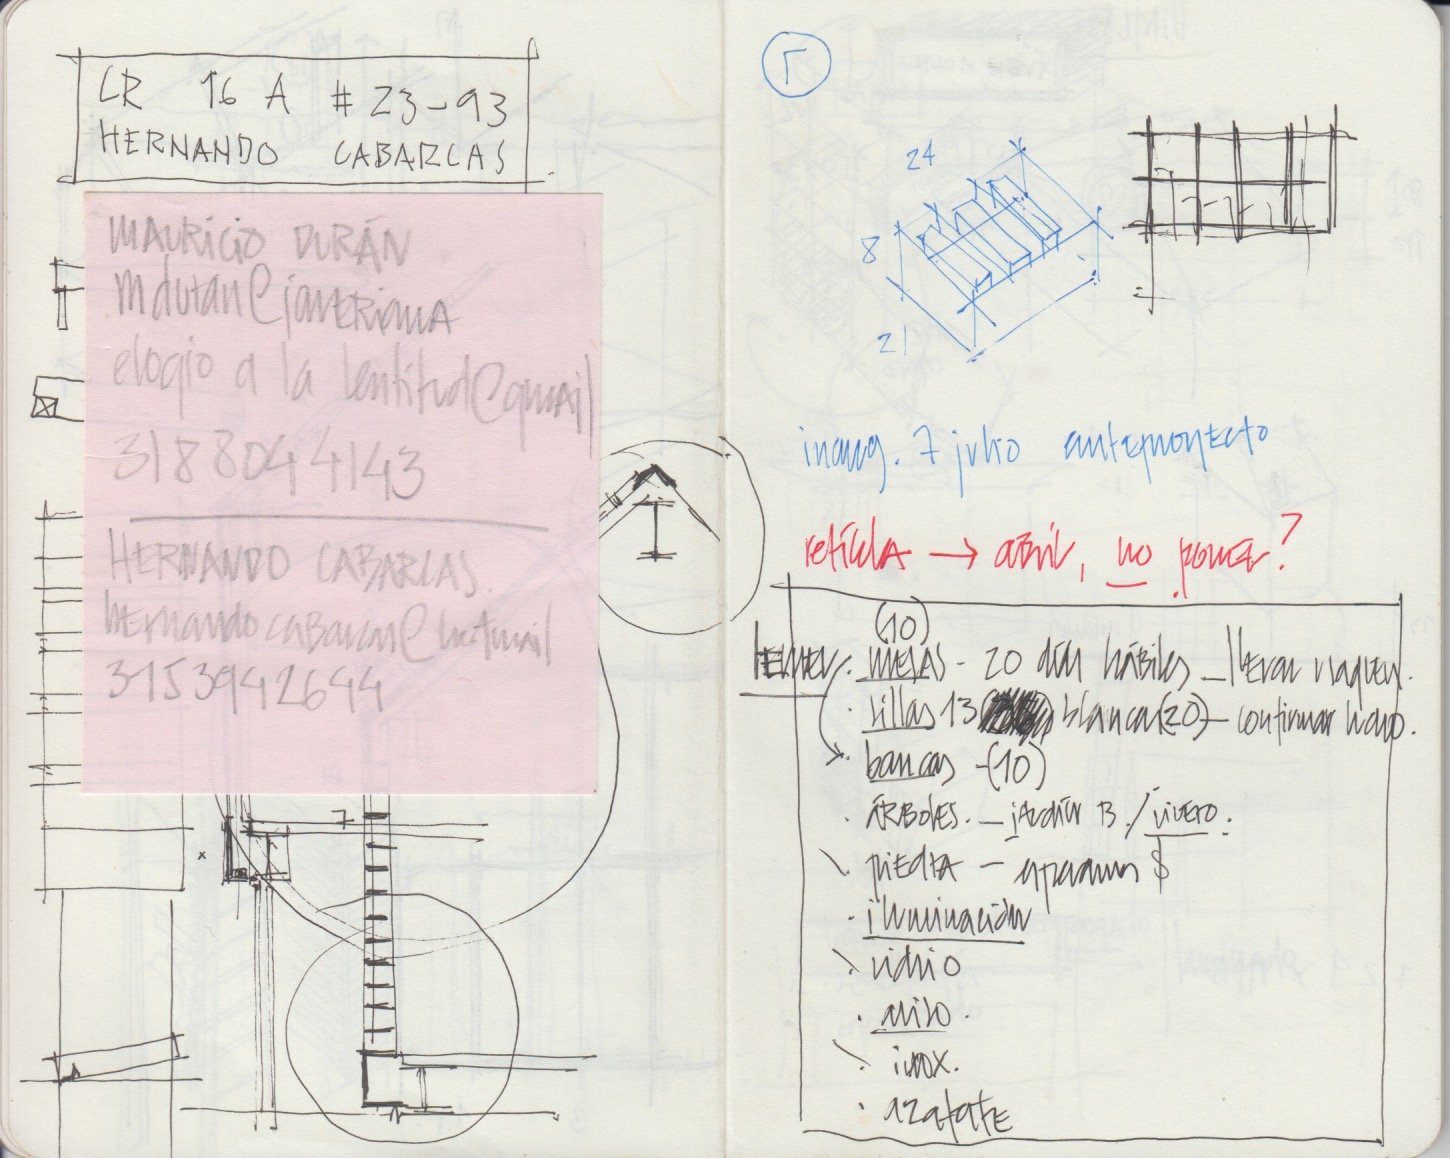 CR 16 A # 23-93
HERNANDO CABARCAS
MAURICIO DURÁN
mduran@javeriana
elogio a la lentitud@gmail
3188044143
HERNANDO CABARCAS.
hernandocabarcas@hotmail
3153942644
7
x
24
8
21
inaug. 7 julio anteproyecto
retícula → abril, no poner?
(10)
mesas - 20 días hábiles -
sillas 13 blancas (20) - confirmar
bancas - (10)
ÁRBOLES. - jardín B / vivero.
piedra - $
iluminación
vidrio
aviso.
inox.
azafate